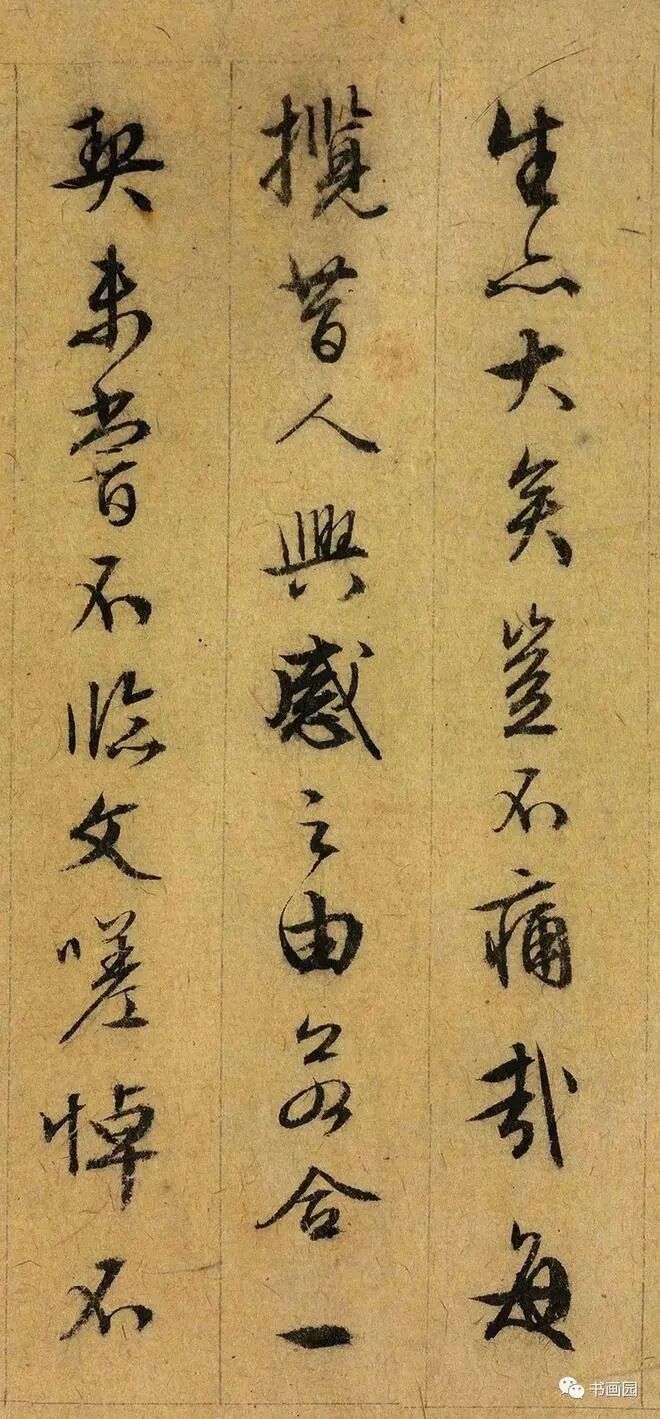 生亦大矣豈不痛哉每
攬昔人興感之由若合一
契未嘗不臨文嗟悼不
书画园